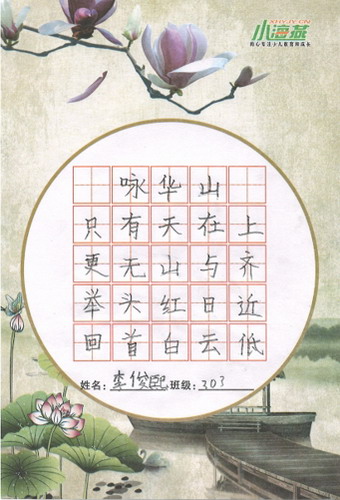 XHY.JY.CN
小海燕
用心专注少儿教育和成长
咏华山
只有天在上
更无山与齐
举头红日近
回首白云低
姓名：李俊熙 班级：303